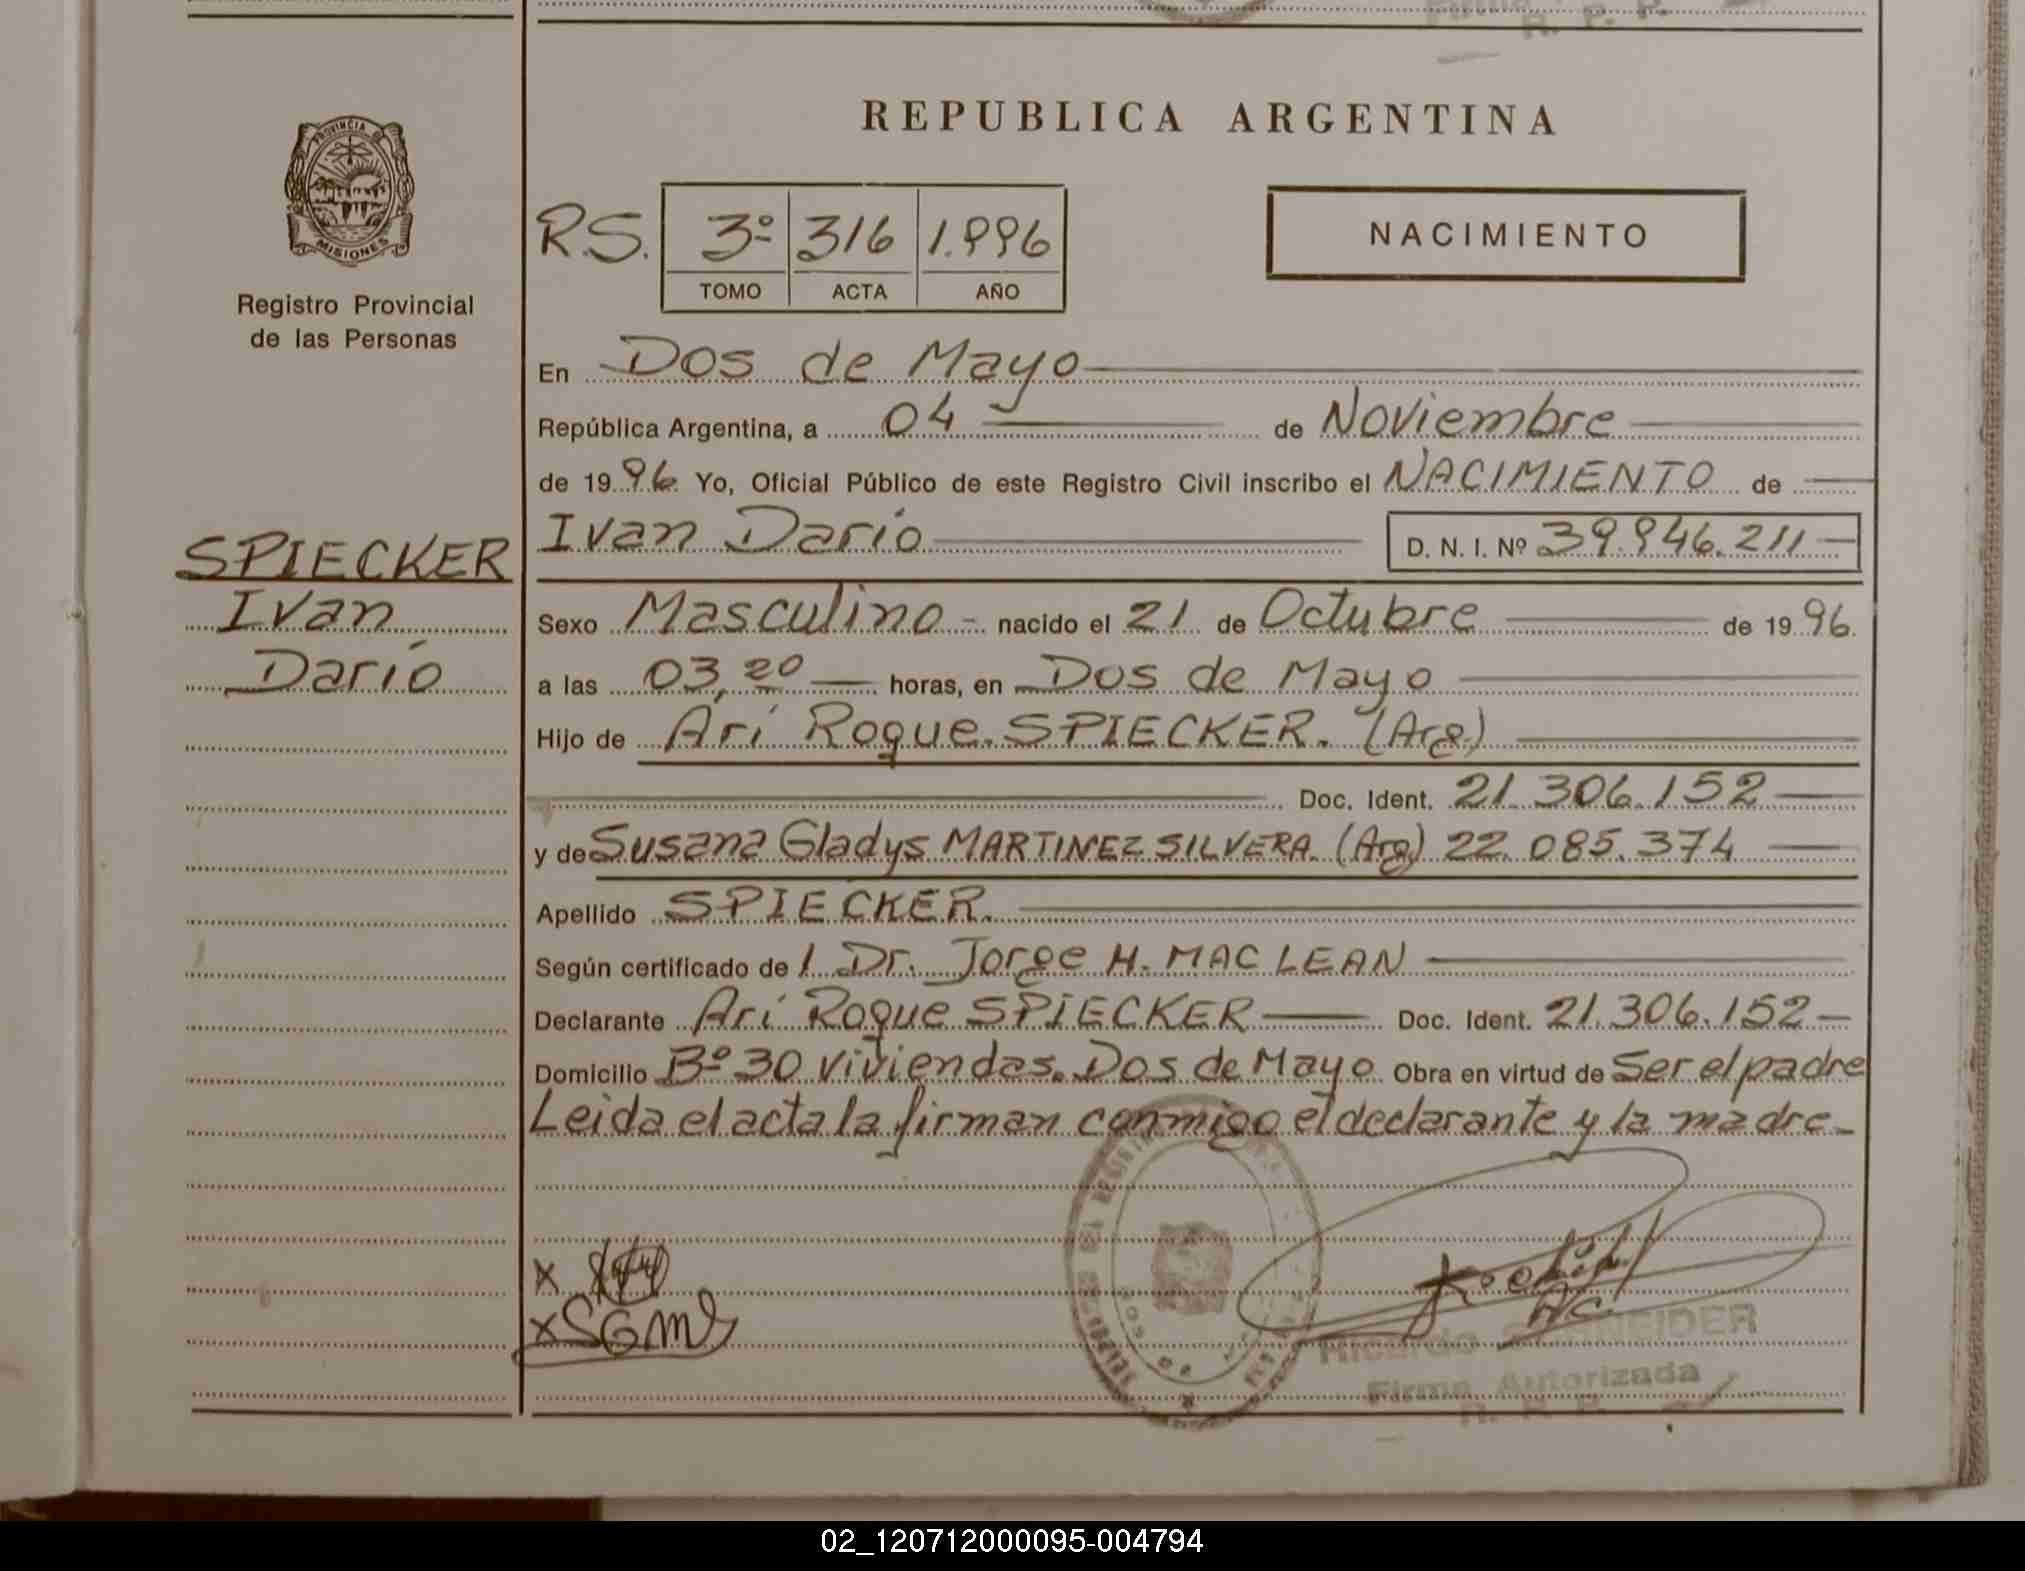 REPUBLICA ARGENTINA
PROVINCIA D
MISIONES
Registro Provincial
de las Personas
R.S. 3º 316 1.996
TOMO ACTA AÑO
NACIMIENTO
En Dos de Mayo
República Argentina, a 04 de Noviembre
de 1996 Yo, Oficial Público de este Registro Civil inscribo el NACIMIENTO de
SPIECKER
Ivan
Darío
Ivan Darío D. N. I. Nº 39.946.211
Sexo Masculino nacido el 21 de Octubre de 1996.
a las 03,20 horas, en Dos de Mayo
Hijo de Arí Roque SPIECKER. (Arg.)
Doc. Ident. 21.306.152
y de Susana Gladys MARTINEZ SILVERA. (Arg) 22.085.374
Apellido SPIECKER.
Según certificado de 1 Dr. Jorge H. MAC LEAN
Declarante Arí Roque SPIECKER Doc. Ident. 21.306.152
Domicilio Bº 30 viviendas. Dos de Mayo Obra en virtud de Ser el padre
Leida el acta la firman conmigo el declarante y la madre
X
X SGMS
Ricardo SCHNEIDER
Firma Autorizada
R. P. P.
02_120712000095-004794